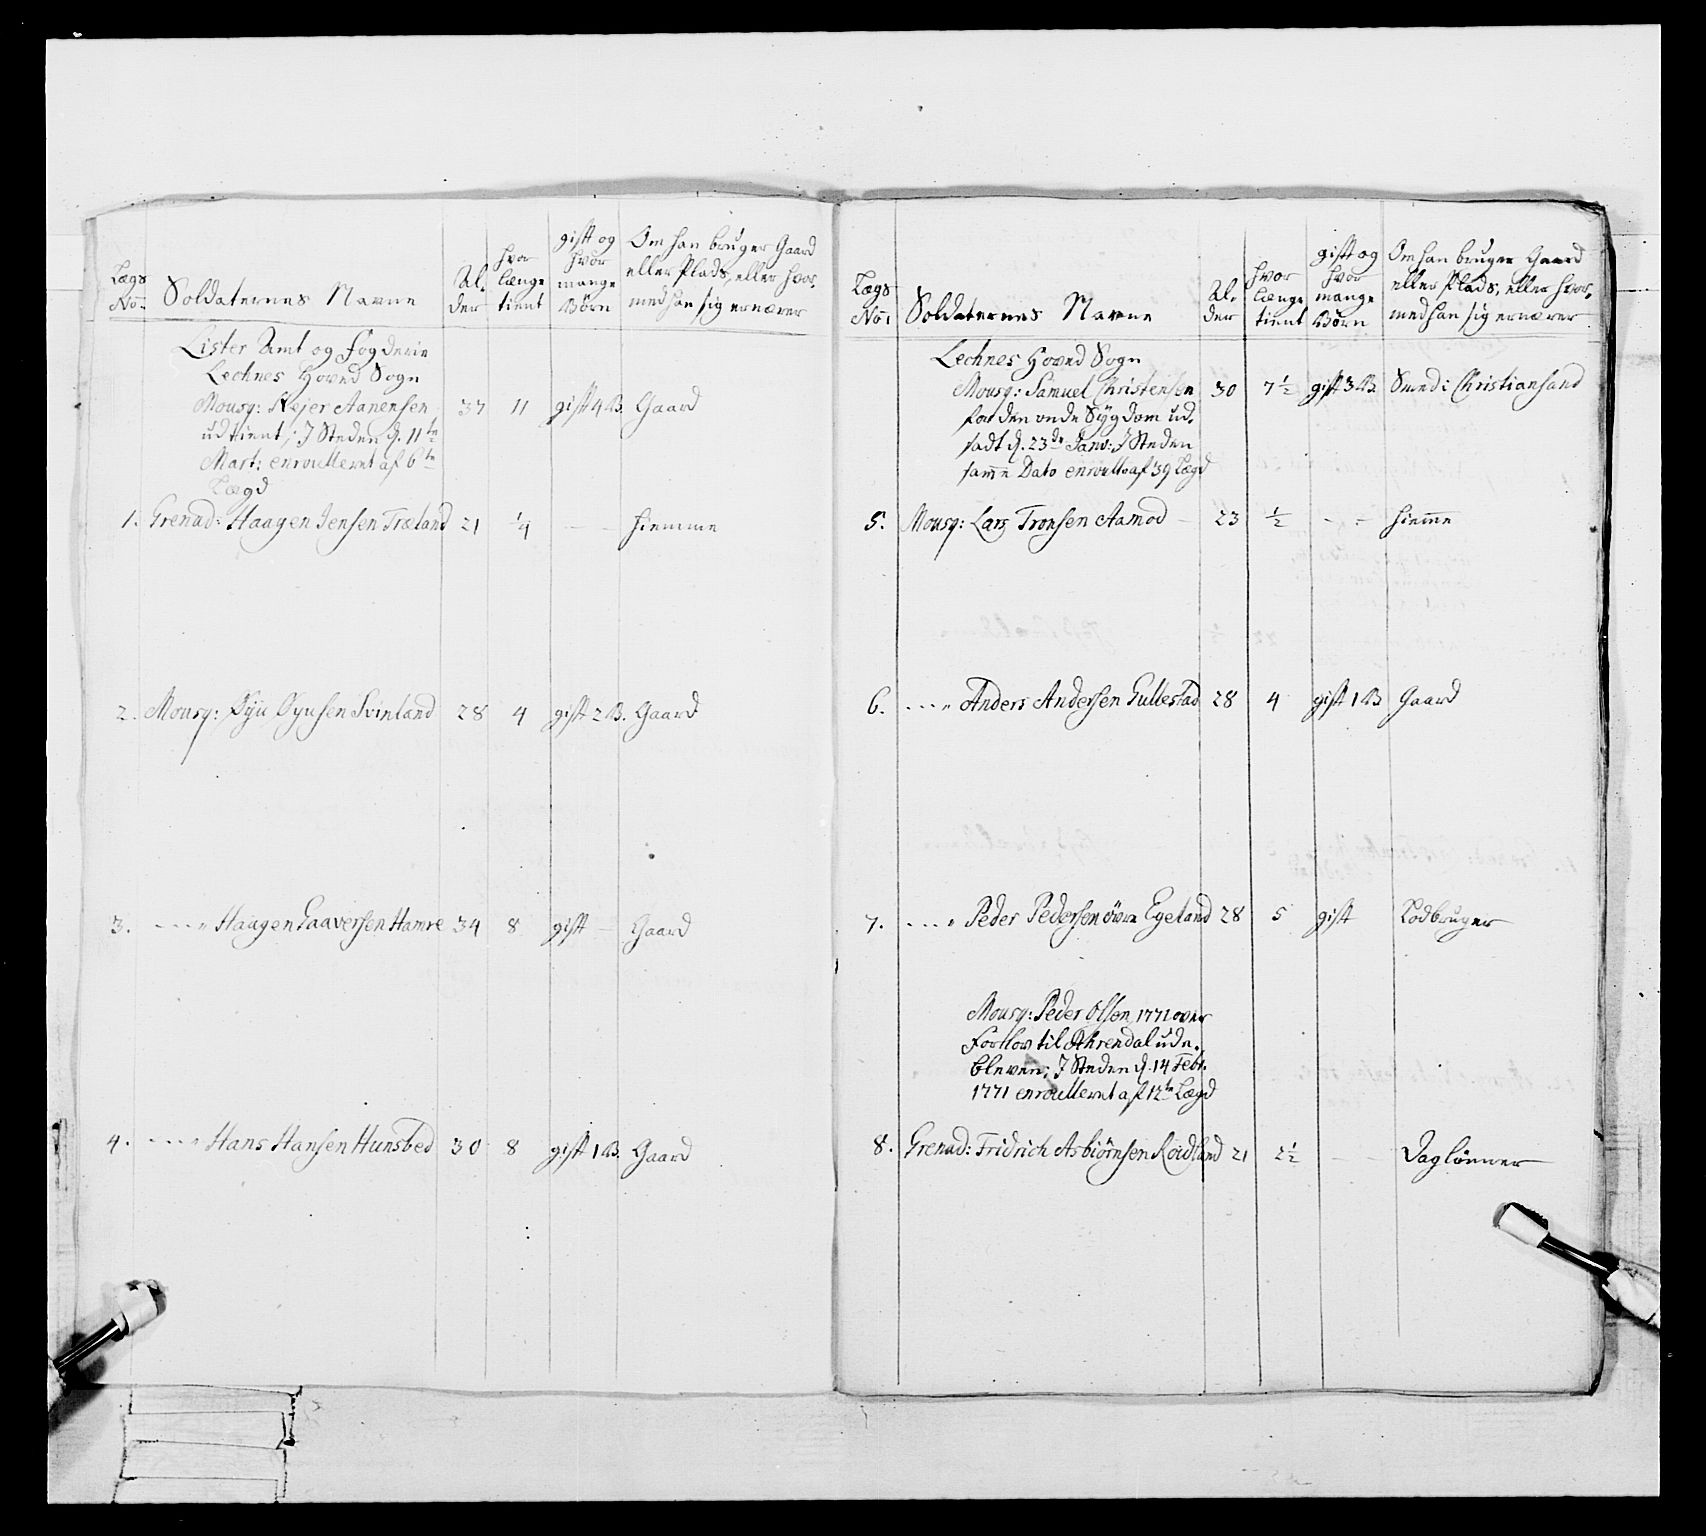 Lægs No:
Soldaternes Navne
Al-
der
hvor
længe
tient
gift og
hvor
mange
Börn
Om han bruger Gaard
eller Plads, eller hvor-
med han sig ernærer
Lister Amt og Fogderie
Lechnes Hoved Sogn
Mousq: Rejer Aanensen 37 11 gift 4 B. Gaard
udtient; J Steden d. 11te
Mart: enroulleret af 6te
Lægd
1. Grenad: Haagen Jensen Træland 21 1/4 — — hiemme
2. Mousq: Öyu Öyusen Svinland 28 4 gift 2 B. Gaard
3. ---" Haagen Gaaversen Hamre 34 8 gift — Gaard
4. ---" Hans Hansen Hunsbed 30 8 gift 1 B. Gaard
Lægs
No:
Soldaternes Navne
Al-
der
hvor
længe
tient
gift og
hvor
mange
Börn
Om han bruger Gaard
eller Plads, eller hvor-
med han sig ernærer
Lechnes Hoved Sogn
Mousq: Samuel Christensen 30 7 1/2 gift 3 B. Smed i Christiansand
for den onde Sÿgdom ud-
sadt d. 23de Janv: J Steden
samme Dato enroull: af 39 Lægd
5. Mousq: Lars Tronsen Aamod — 23 1/2 - - hiemme
6. ---" Anders Andersen Gullestad 28 4 gift 1 B Gaard
7. ---" Peder Pedersen övre Egeland 28 5 gift Lodbruger
Mousq: Peder Olsen, 1771 over
Forlov til Ahrendal ude-
bleven; J Steden d. 14 Febr.
1771 enroulleret af 12te Lægd
8. Grenad: Fridrich Asbiörnsen Röidland 21 2 1/2 — — Daglönner